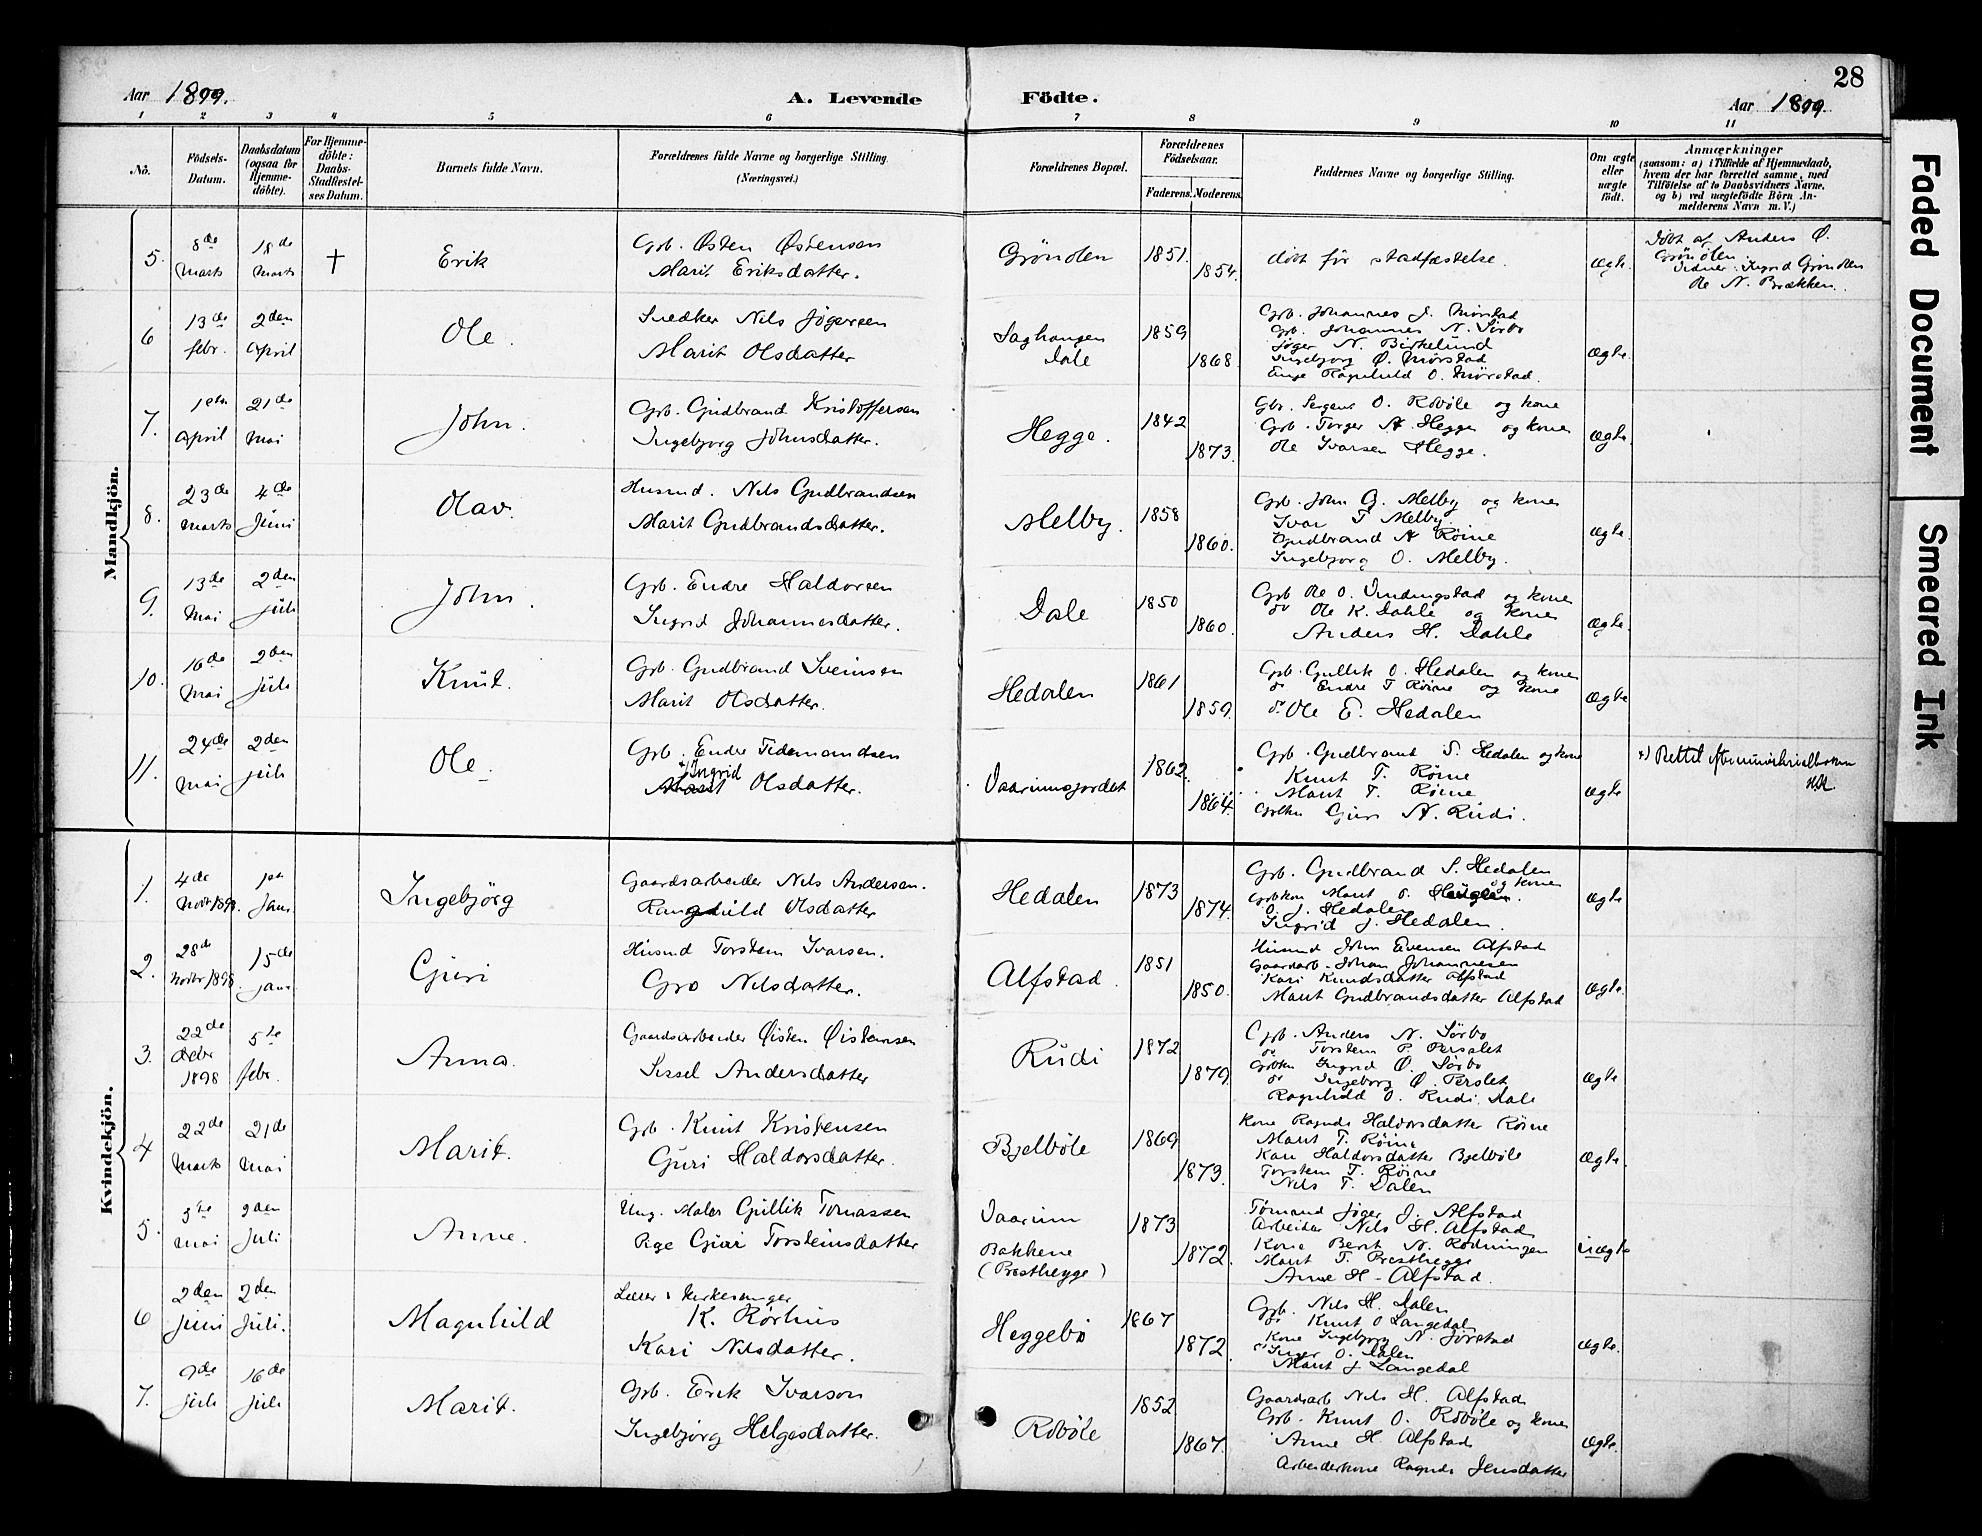 28
Aar 1899. A. Levende Födte. Aar 1899.
1 2 3 4 5 6 7 8 9 10 11
No.
Födsels-Datum.
Daabsdatum (ogsaa for Hjemme-döbte).
For Hjemme-döbte: Daabs-Stadfæstel-ses Datum.
Barnets fulde Navn.
Forældrenes fulde Navne og borgerlige Stilling.
(Næringsvei.)
Forældrenes Bopæl.
Forældrenes Födselsaar.
Faderens. Moderens.
Faddernes Navne og borgerlige Stilling.
Om ægte eller uægte födt.
Anmærkninger
(saasom: a) i Tilfælde af Hjemmedaab, hvem der har forrettet samme, med Tilföielse af to Daabsvidners Navne, og b) ved uægtefödte Börn Anmelderens Navn m. V.)
Mandkjön.
5. 8de Marts 18de Marts † Erik
Grb. Østen Østensen
Marit Eriksdatter.
Grönolen 1851. 1854.
döbt för stadfæstelse. ægte.
Döbt af Anders Ø.
Grönolen
Vidner: Ingrid Grönolen
Ole N. Brækken.
6 13de febr. 2den April Ole.
Snedker Nils Jögersen
Marit Olsdatter
Saghaugen
Dale
1859 1868.
Grb. Johannes J. Mörstad
Grb. Johannes N. Sörbo
Jöger N. Birkelund
Ingebjorg Ø. Mörstad
Enge Ragnhild O. Mörstad.
ægte.
7. 1ste April 21de Mai John.
Grb. Gudbrand Kristoffersen
Ingebjorg Johnsdatter.
Hegge. 1842 1873.
Gbr. O. Robøle og kone
Grb. Torger A. Hegge og kone
Ole Ivarsen Hegge.
ægte
8. 23de Marts 4de Juni Olav.
Husmd. Nils Gudbrandsen
Marit Gudbrandsdatter.
Melby. 1858 1860.
Grb. John G. Melby og kone
Ivar T Melby.
Gudbrand A Röine
Ingebjorg O. Melby.
ægte.
9. 13de Mai 2den Juli John.
Grb. Endre Haldorsen
Ingrid Johannesdatter.
Dale 1850 1860.
Grb Ole O. Vindingstad og kone
do Ole K. Dahle og kone
Anders H. Dahle
ægte.
10. 16de Mai 2den Juli Knut.
Grb. Gudbrand Sveinsen
Marit Olsdatter.
Hedalen 1861 1859.
Grb. Gullik O. Hedalen og kone
do Endre T Röine og kone
do Ole E. Hedalen
ægte
11. 24de Mai 2den Juli Ole.
Grb. Endre Tidemandsen
x) Ingrid
Marit Olsdatter.
Vaarumsjordet 1862. 1864.
Grb. Gudbrand S. Hedalen og kone
Knut T. Röine
Marit T. Röine
Guri A. Rudi.
ægte
x) Rettet efter ministerialboken
Kvindekjön.
1. 4de Novr 1898. 1ste Janr. Ingebjörg
Gaardsarbeider Nils Andersen.
Ragnhild Olsdatter
Hedalen 1873 1874.
Grb. Gudbrand S. Hedalen
og kone
O. J. Hedalen
Ingrid J. Hedalen.
ægte
2. 28de Novbr 1898. 15de Janr Guri
Husmd Torstein Ivarsen.
Gro Nilsdatter.
Alfstad. 1851 1850.
Husmd John Evensen Alfstad
Gaardarb. Johan Johannesen
Kari Knudsdatter Alfstad
Marit Gudbrandsdatter Alfstad
ægte.
3. 22de Debr 1898 5te febr. Anna.
Gaardsarbeider Øisten Øistensen
Sissel Andersdatter
Rudi 1872 1879.
Grb. Anders N. Sörbo
do Torstein P. Perslet
Ingrid O. Sörbo
do Ingeborg Ø. Perslet
Ragnhild O. Rudi. Dale
ægte
4 22de Marts 21de Mai Marit.
Grb. Knut Kristensen
Guri Haldorsdatter.
Bjelböle 1869 1873.
Kone Ragndi Haldorsdatter Röine
Marit T. Röine
Kari Haldorsdatter Bjelböle
Torstein T. Röine
Nils T. Dalen
ægte.
5. 3die Mai 2den Juli Anne.
Ung. Maler Gullik Tomassen
Pige Guri Torsteinsdatter
Vaarum
Bakkene
(Presthegge)
1873 1872.
Tömmd Jöger J. Alfstad
Arbeider Nils H. Alfstad
Kone Berit N. Rodningen
Marit T. Presthegge
Anne H. Alfstad.
uægte
6 2den Juni 2den Juli. Magnhild
Lærer & Kirkesanger
K. Rörhus
Kari Nilsdatter.
Heggebö 1867 1872.
Grb. Nils H. Dalen
do Knut O Langedal
Kone Ingebjorg N. Jörstad
Inger O. Dalen
Marit J Langedal
ægte.
7. 9de Juli 16de Juli Marit.
Grb. Erik Ivarson
Ingebjörg Helgesdatter.
Robøle 1852 1867.
Gaardsarb Nils H. Alfstad
Grb. Knut O. Robøle og kone
Anne H. Alfstad
Arbeiderkone Ragndi Jensdatter
ægte.
Faded Document
Smeared Ink